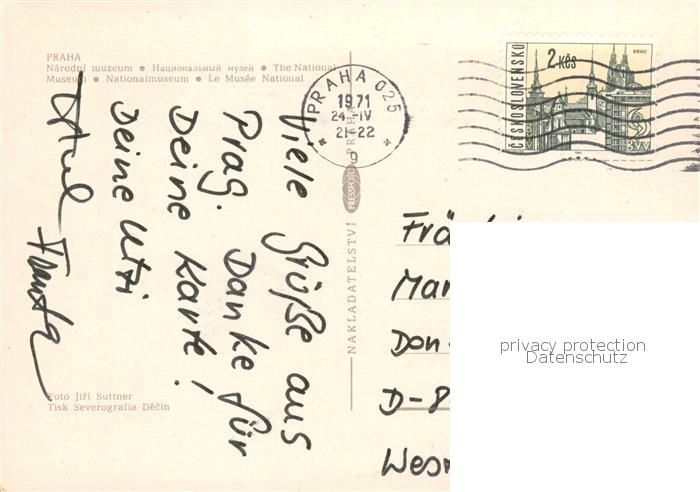 PRAHA
Národní muzeum ● Национальный музей ● The National
Museum ● Nationalmuseum ● Le Musée National
PRAHA 025
1971
24.-IV
21-22
g
ČESKOSLOVENSKO
2 Kčs
BRNO
BVV
Viele Grüße aus
Prag. Danke für
Deine Karte!
Deine Utzi
NAKLADATELSTVÍ
PRESSFOTO
PRAHA
Frä
Mar
Don-
D-8
Wes
privacy protection
Datenschutz
Foto Jiří Suttner
Tisk Severografia Děčín